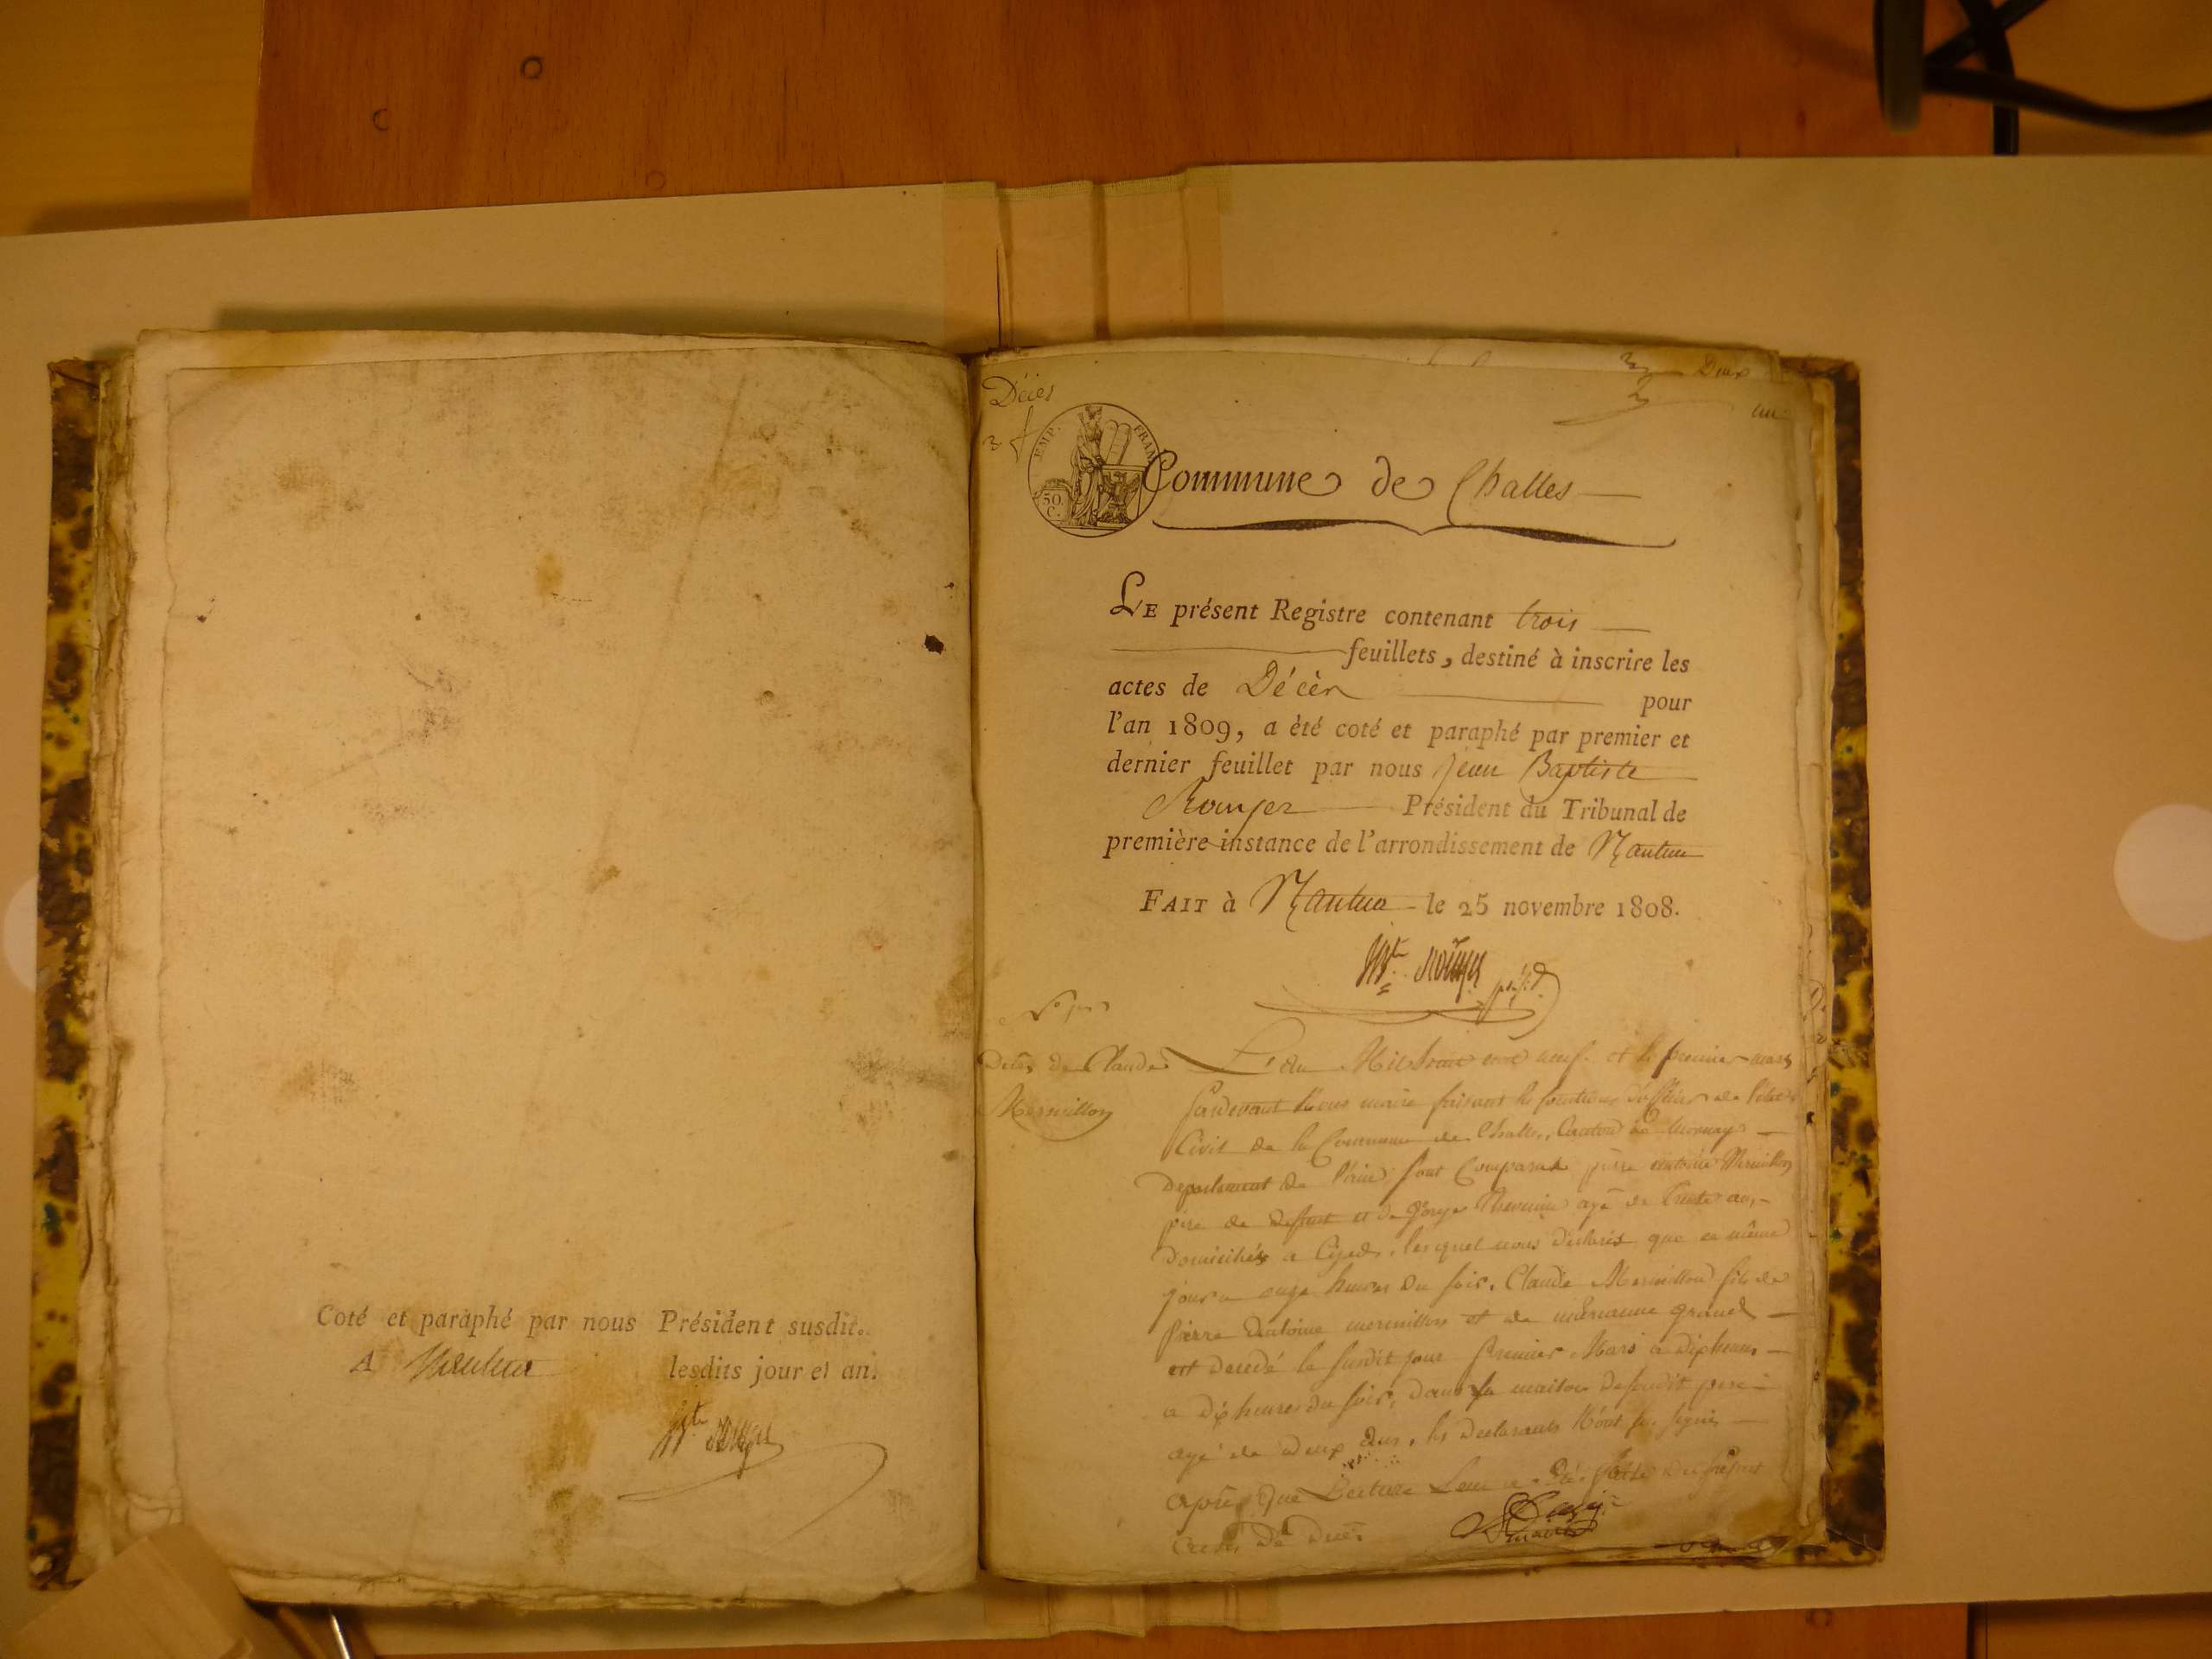 Coté et paraphé par nous Président susdit.
A Nantua lesdits jour et an.
Bte Rouyer
Décès
3 f
2 Deux
EMP. FRAN
50 C.
Commune de Challes
LE présent Registre contenant trois
feuillets, destiné à inscrire les
actes de Décès pour
l'an 1809, a été coté et paraphé par premier et
dernier feuillet par nous Jean Baptiste
Rouyer Président du Tribunal de
première instance de l'arrondissement de Nantua
FAIT à Nantua le 25 novembre 1808.
Bte Rouyer présid.
No 1er
Décès de Claude
Mermillon
L'an Mil huit cent neuf et le premier mars
Pardevant Nous maire faisant les fonctions d'officier de l'état
Civil de la Commune de Challes, Canton de
Departement de l'ain sont Comparus pierre antoine Mermillon
pere du defunt et de agé de trente ans
Domiciliés a lesquel nous déclaré que ce même
jour a onze heures du soir, Claude Mermillon fils de
pierre Antoine mermillon et de marianne
est decedé le susdit jour premier Mars a dix heures
a dix heures du soir, dans la maison desoudit pere
agé de deux Ans, les Declarants N'ont su signer
après que Lecture Leur a Eté faite du present
acte de Decès
maire